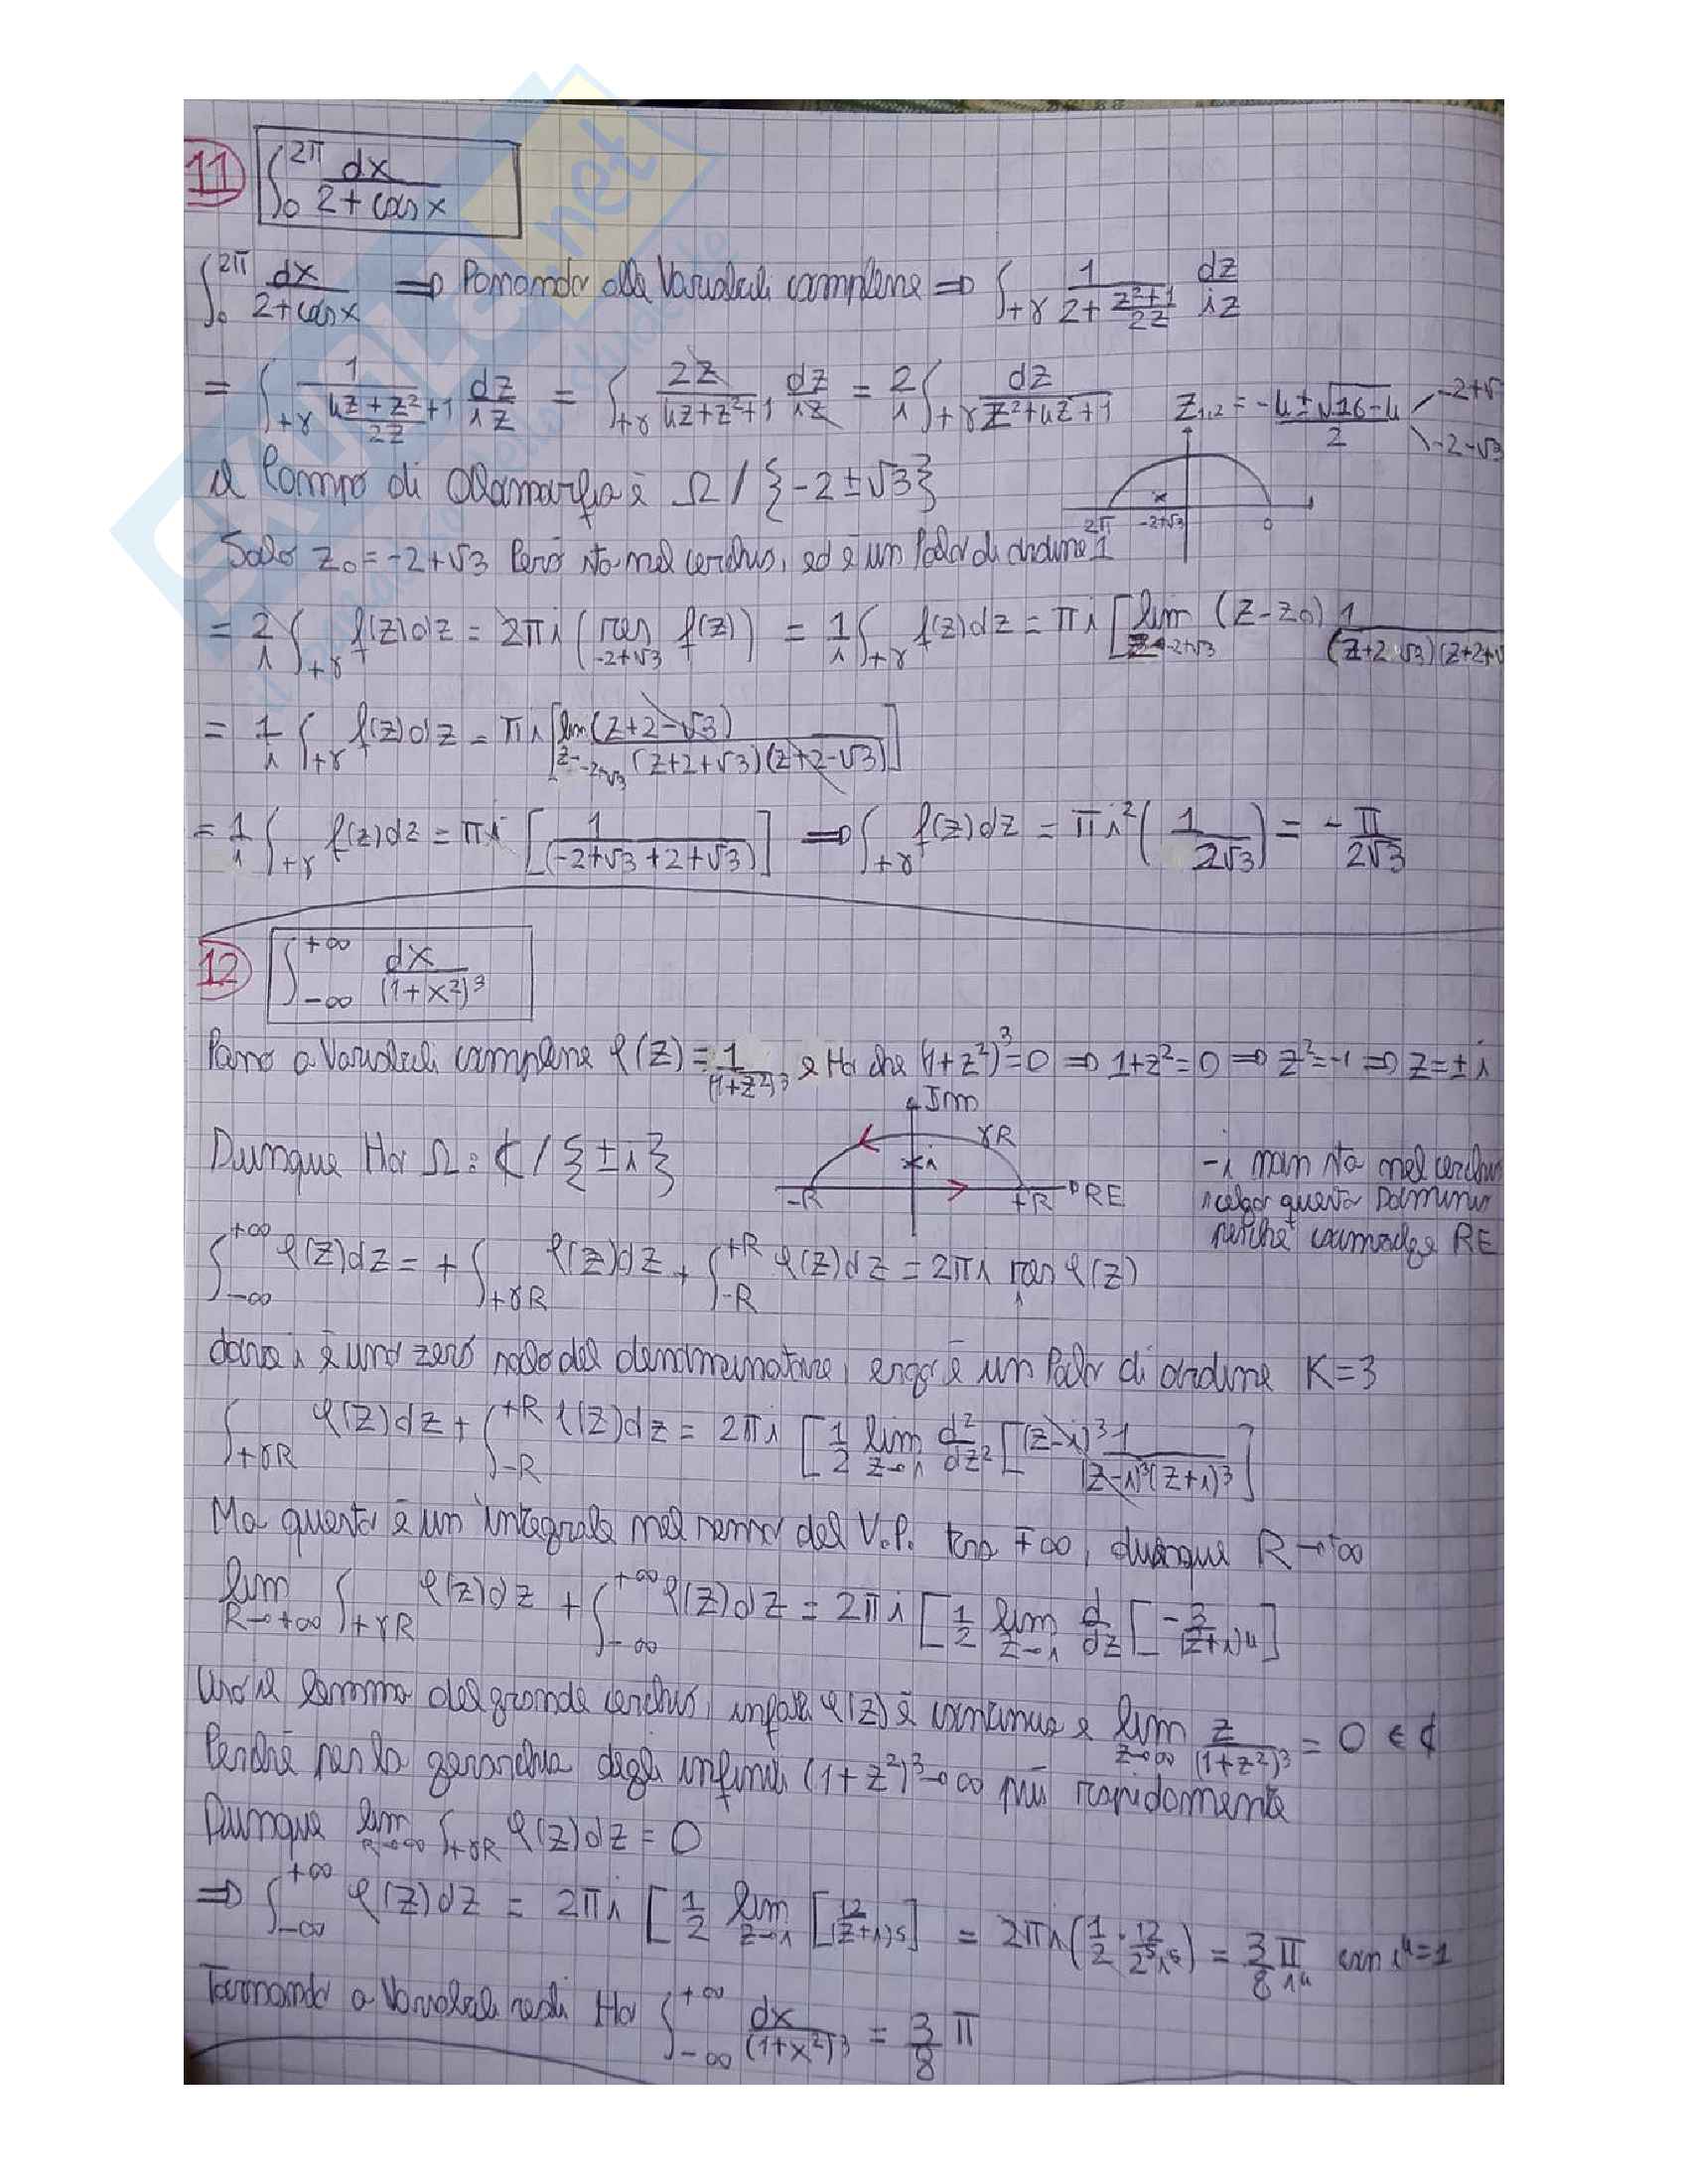 11 ∫₀^2π dx/(2+cos x)
∫₀^2π dx/(2+cos x) ⇒ Passando alle Variabili complesse ⇒ ∫+γ 1/(2+(z²+1)/2z) dz/iz
= ∫+γ 1/((4z+z²+1)/2z) dz/iz = ∫+γ 2z/(4z+z²+1) dz/iz = 2/i ∫+γ dz/(z²+4z+1) z₁,₂ = (-4±√16-4)/2 -2+√ -2-√3
il Campo di Olomorfia è Ω / {-2±√3}
2π -2+√3 0
Solo z₀ = -2+√3 Però sta nel cerchio, ed è un Polo di ordine 1
= 2/i ∫+γ f(z)dz = 2πi (res -2+√3 f(z)) = 1/i ∫+γ f(z)dz = πi [lim z→-2+√3 (z-z₀) 1/(z+2 √3)(z+2+√
= 1/i ∫+γ f(z)dz = πi [lim z→-2+√3 (z+2-√3)/(z+2+√3)(z+2-√3)]
= 1/i ∫+γ f(z)dz = πi [1/(-2+√3+2+√3)] ⇒ ∫+γ f(z)dz = πi² (1/2√3) = -π/2√3
12 ∫-∞^+∞ dx/(1+x²)³
Passo a Variabili complesse φ(z) = 1/(1+z²)³ e Ho che (1+z²)³=0 ⇒ 1+z²=0 ⇒ z²=-1 ⇒ z=±i
Im γR xi -R +R RE
Dunque Ho Ω: ℂ / {±i}
-i non sta nel cerchio
scelgo questo Dominio
perché coinvolge RE
∫-∞^+∞ φ(z)dz = +∫+γR φ(z)dz + ∫-R^+R φ(z)dz = 2πi res i φ(z)
dove i è uno zero solo del denominatore, ergo è un Polo di ordine K=3
∫+γR φ(z)dz + ∫-R^+R φ(z)dz = 2πi [1/2 lim z→i d²/dz² [(z-i)³ 1/(z-i)³(z+i)³]
Ma questo è un integrale nel senso del V.P. tra ∓∞, dunque R→+∞
lim R→+∞ ∫+γR φ(z)dz + ∫-∞^+∞ φ(z)dz = 2πi [1/2 lim z→i d/dz [-3/(z+i)⁴]
Uso il lemma del grande cerchio, infatti φ(z) è continua e lim z→∞ z/(1+z²)³ = 0 ∈ ℂ
Perché per la gerarchia degli infiniti (1+z²)³→∞ più rapidamente
Dunque lim R→∞ ∫+γR φ(z)dz = 0
⇒ ∫-∞^+∞ φ(z)dz = 2πi [1/2 lim z→i [12/(z+i)⁵] = 2πi(1/2 · 12/2⁵i⁵) = 3/8 π/i⁴ con i⁴=1
Tornando a Variabili reali Ho ∫-∞^+∞ dx/(1+x²)³ = 3/8 π